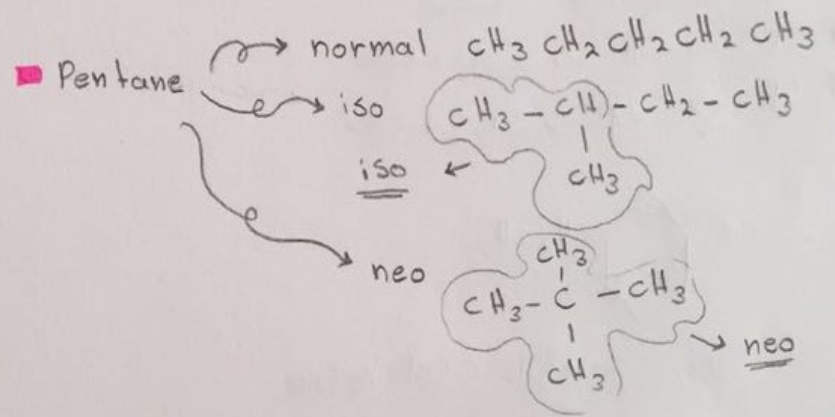 Pentane
normal CH3 CH2 CH2 CH2 CH3
iso CH3 - CH - CH2 - CH3
|
iso ← CH3
neo CH3
|
CH3 - C - CH3
|
CH3
neo